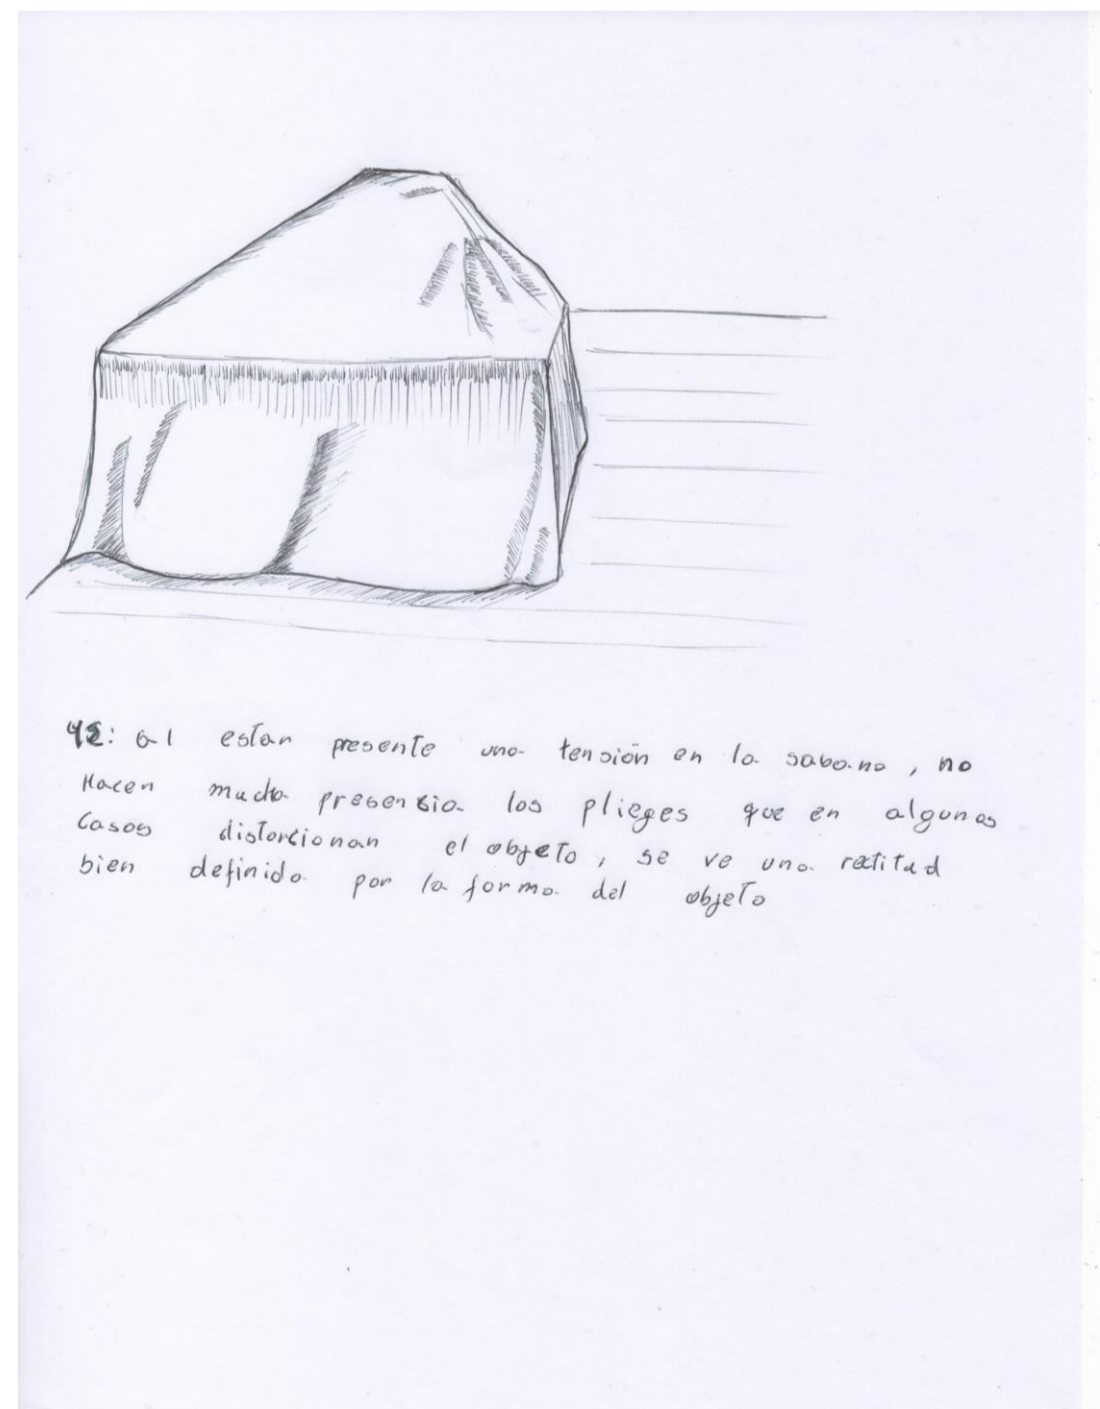 42: al estar presente una tensión en la sabana, no
Hacen mucha presensia los plieges que en algunos
Casos distorcionan el objeto, se ve una rectitud
bien definida por la forma del objeto